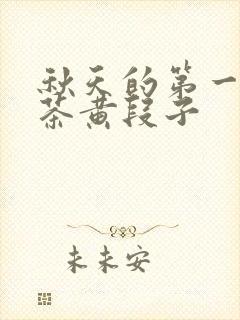 秋天的第一
茶黄段子
未未安